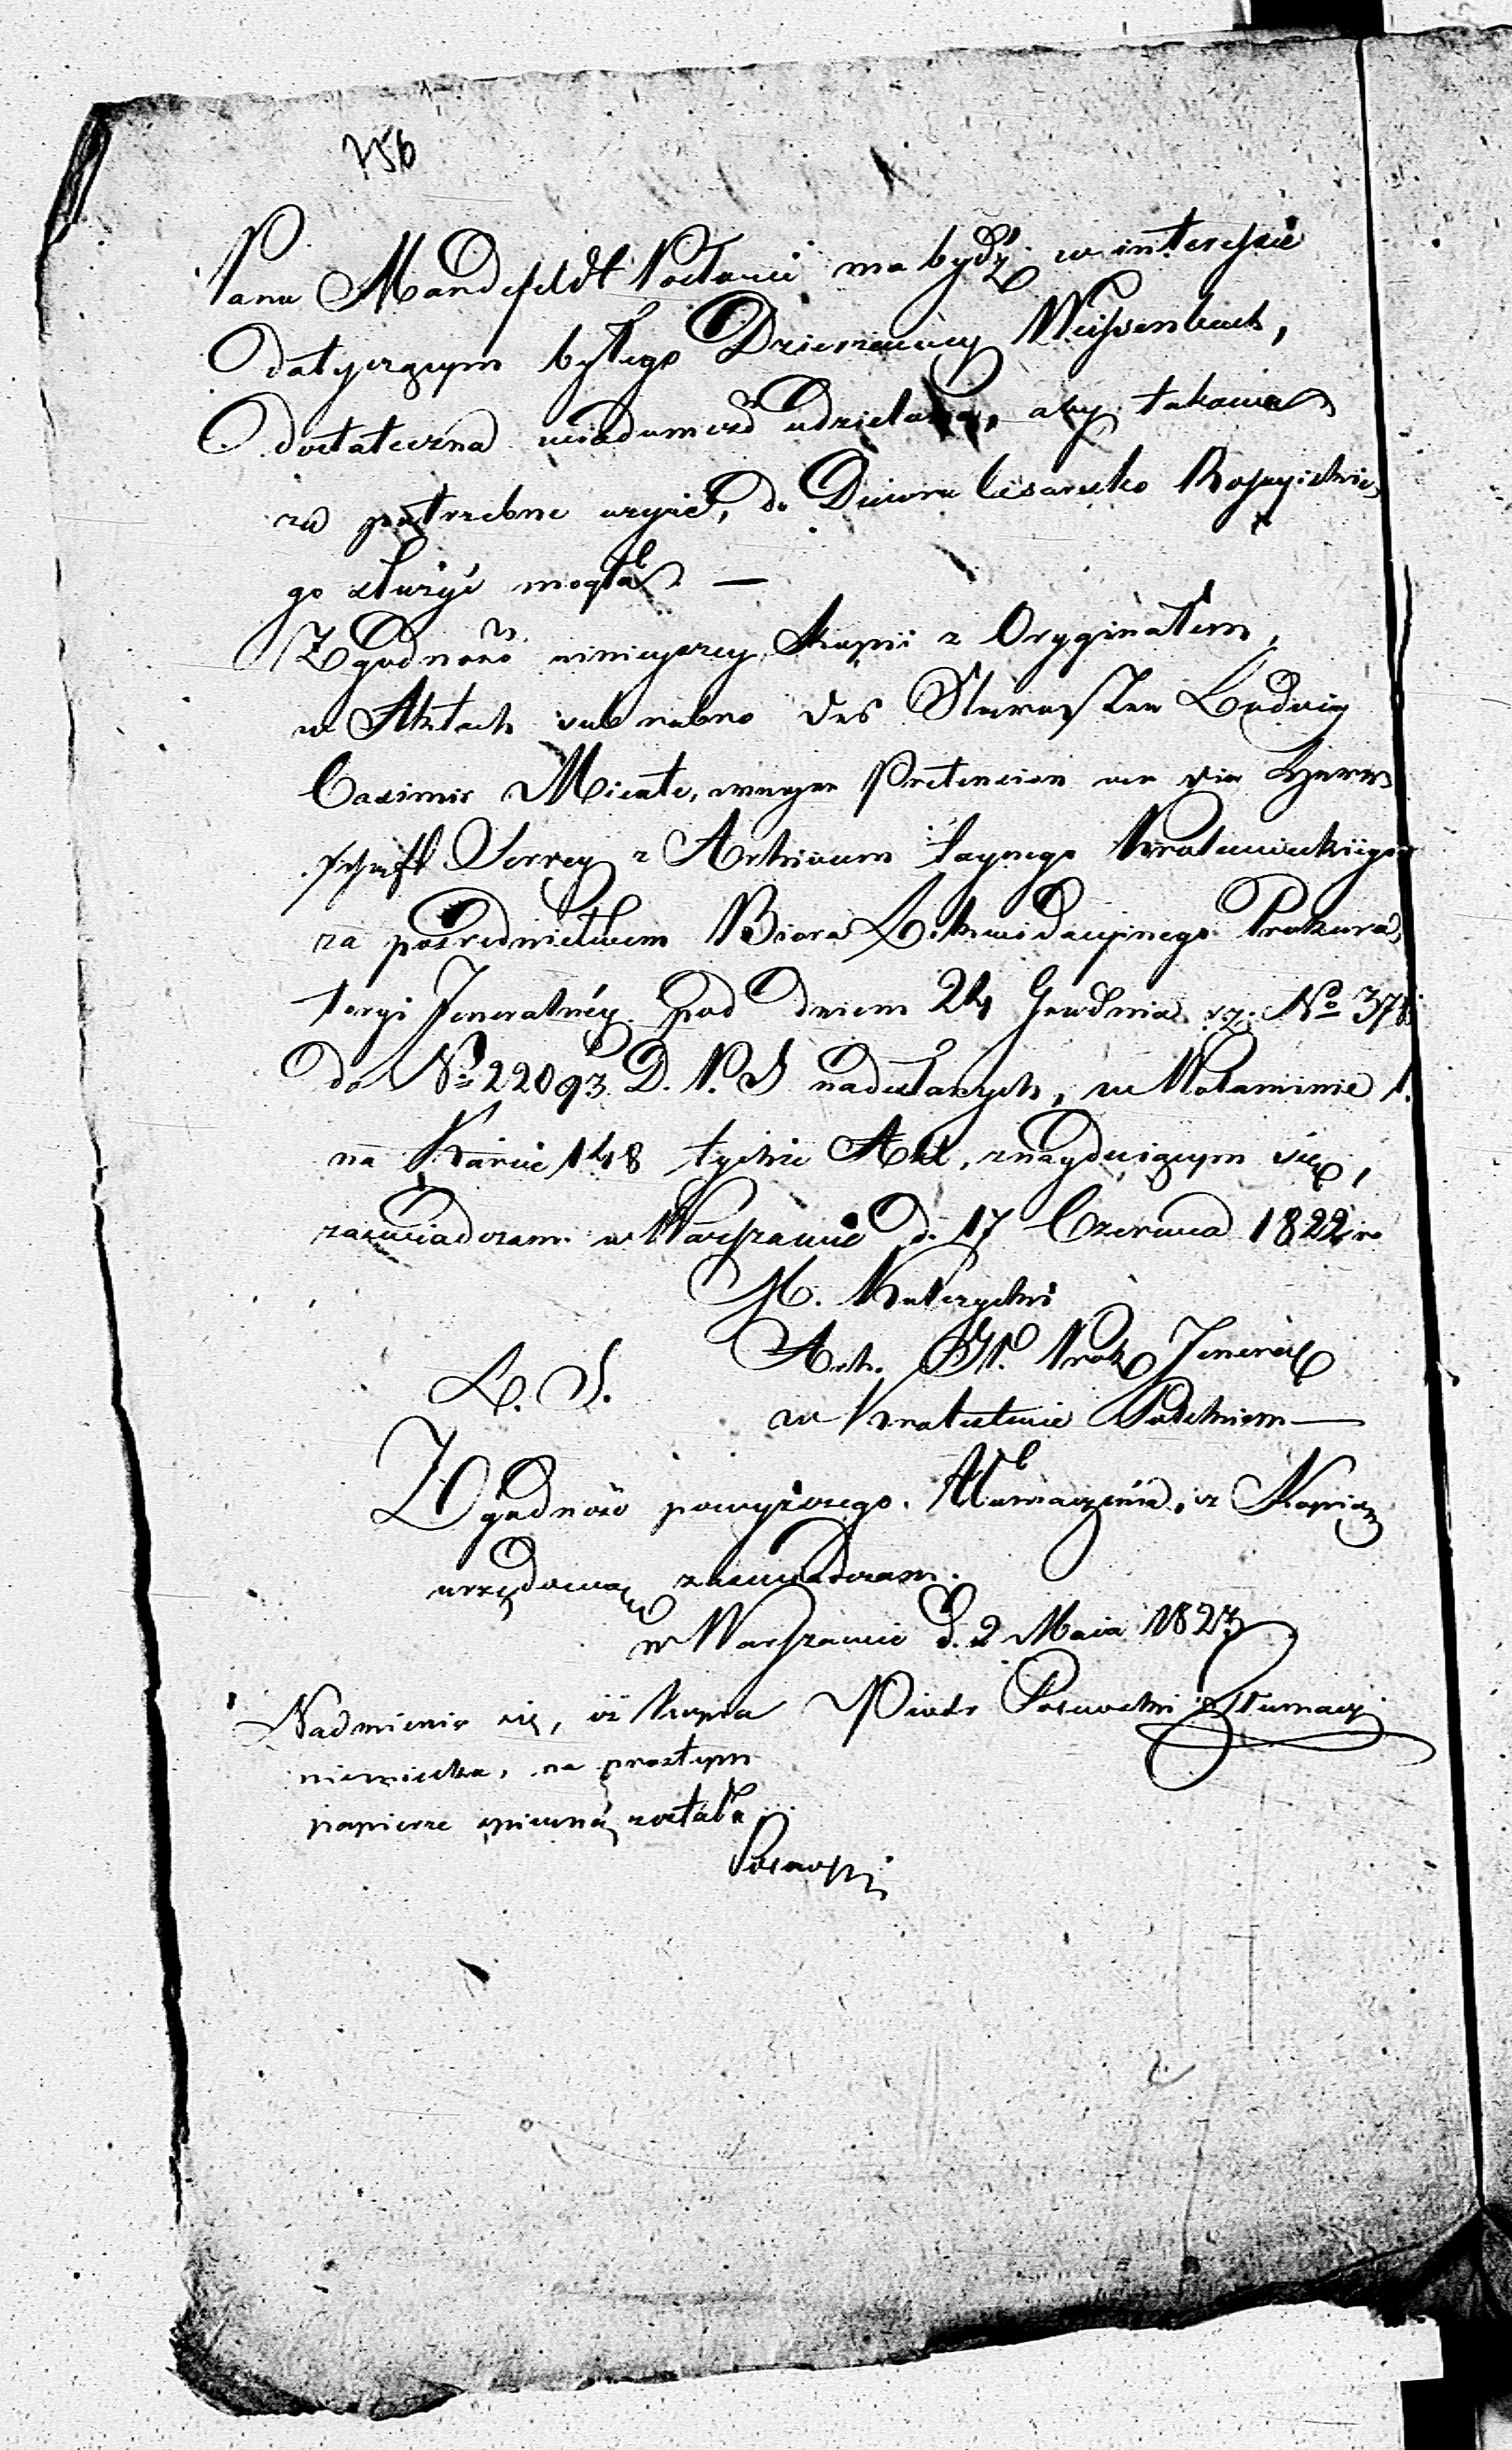 756
Panu Mandefeldt Posłowi ma bydź w interessie
Dotyczącym byłego Dzierżawcy Weissenbach,
dostateczna wiadomość udzielona, aby takowa
za potrzebne użycie, do Dworu Cesarsko Rossyiskie,
go służyć mogła —
Zgodność ninieyszey Kopii z Oryginałem,
w Aktach sub rubro des Starosten Ludwig
Casimir wegen Pretension an die Herr
schaft Serrey z Archiwum taynego Krolewieckiego
za pośrednictwem Biora Likwidacyinego Prokura,
toryi Jeneralnéy pod dniem 24 Grudnia No 378
do No 22093 D. P. S nadesłanych, w Wolaminie 1.
na Karcie 148 tychże Akt, znayduiącym się,
zaświadczam w Warszawie d. 17 Czerwca 1822 r.
Prok Jeneral
w Królestwie Polskiem —
L. S.
Zgodność powyższego Tłumaczenia, z Kopią
urzędową zaświadczam.
w Warszawie d. 2 Maia 1823
Nadmienia się, iż kopia Piotr Tłumacz
niemiecka, na prostym
papierze spisaną została